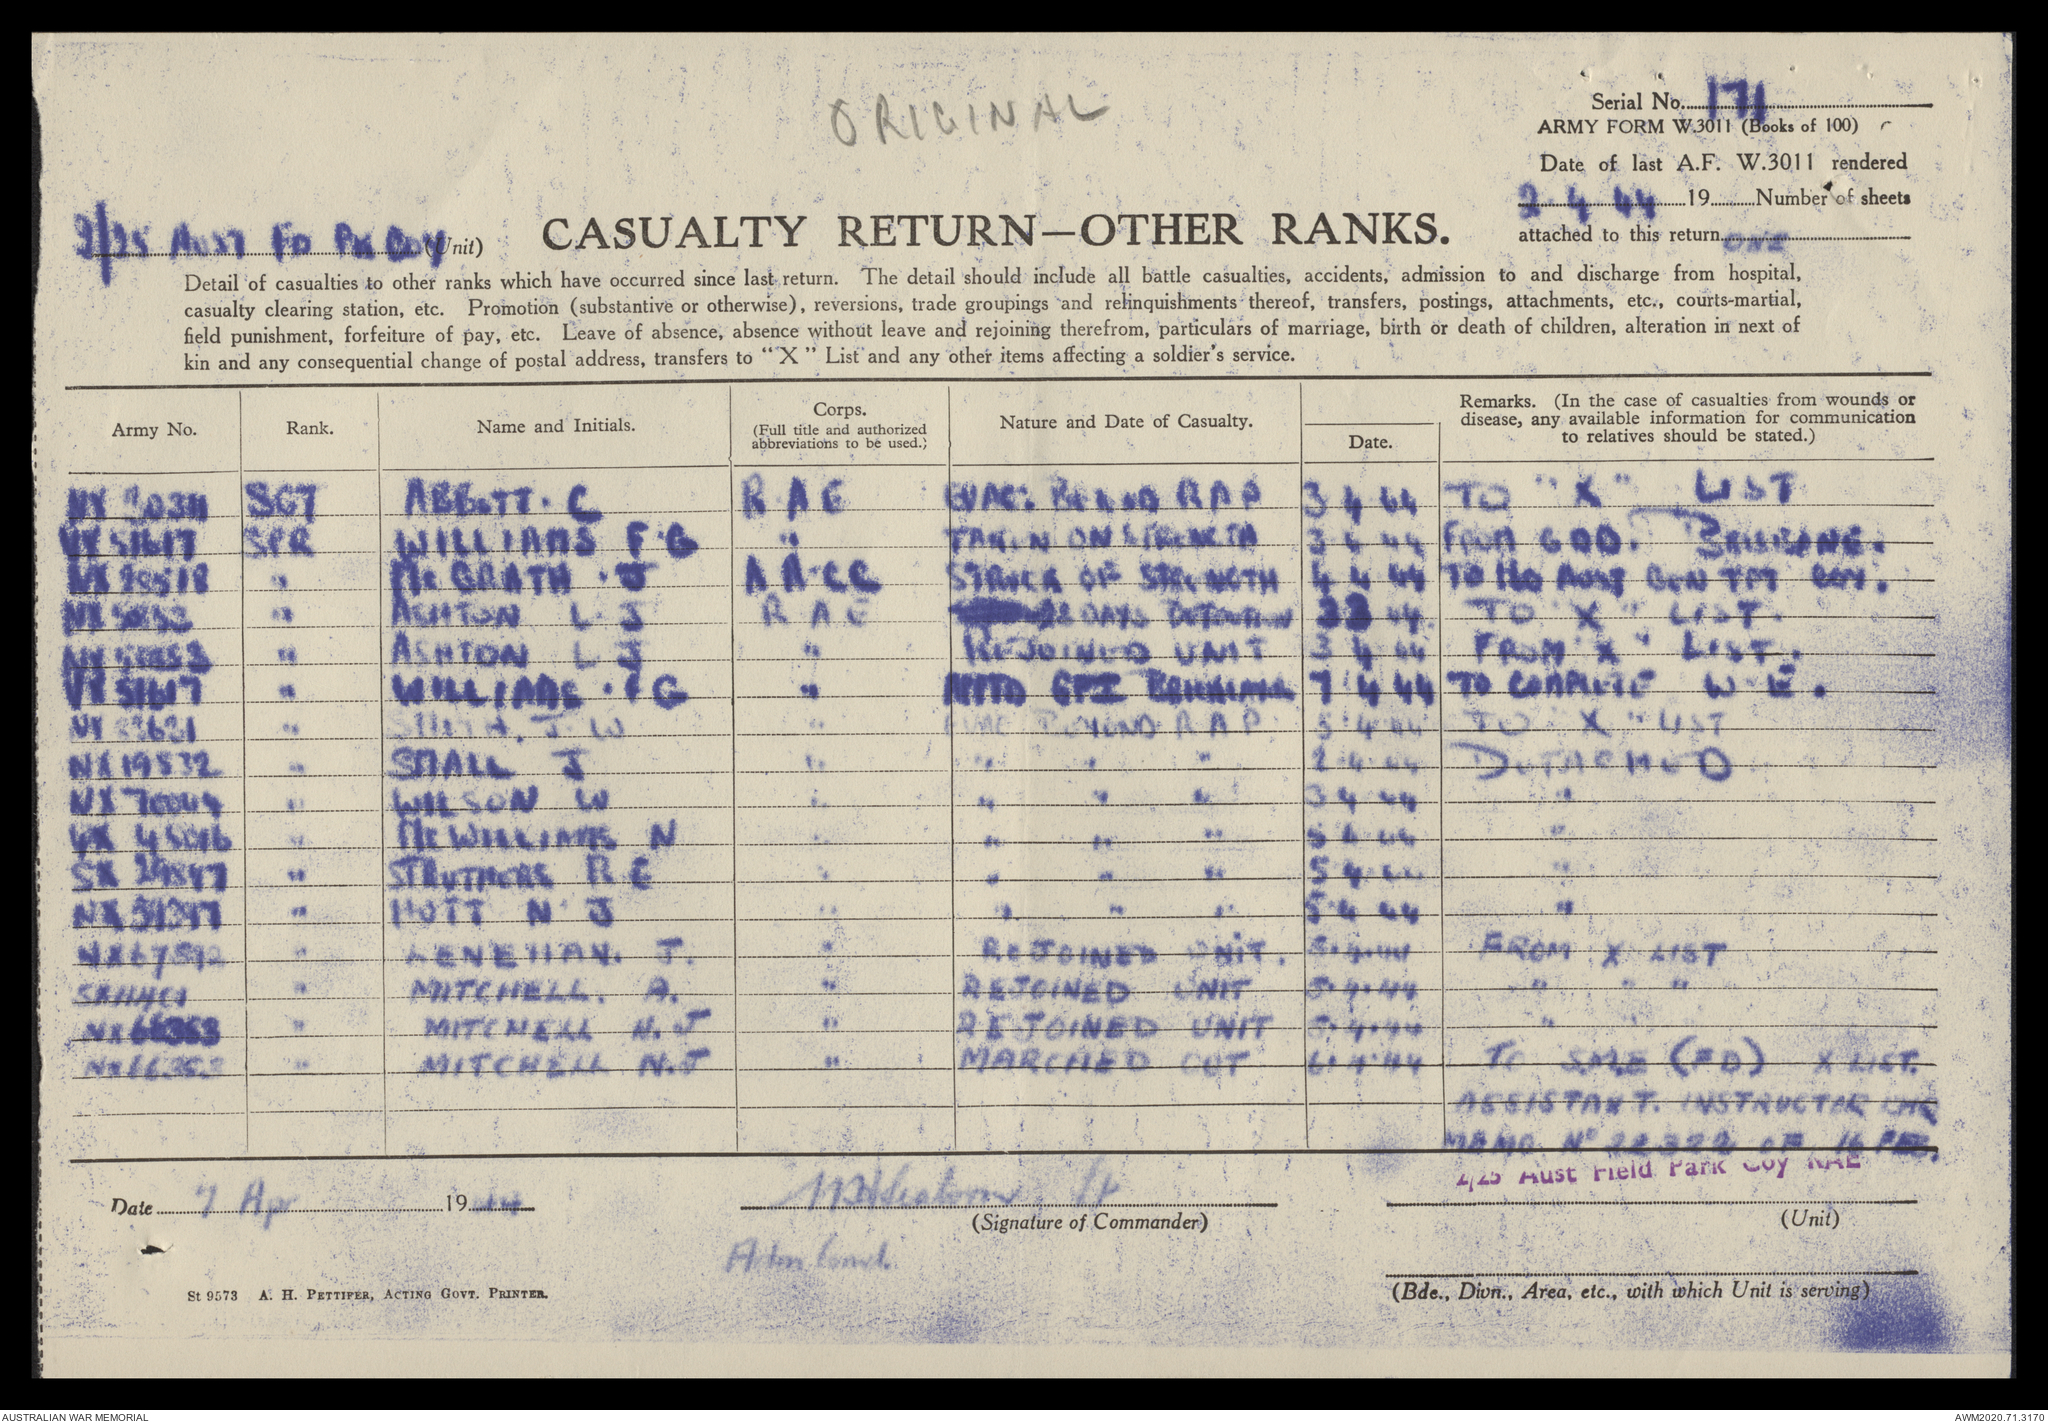 ORIGINAL
Serial No. 171
ARMY FORM W.3011 (Books of 100)
Date of last A.F. W.3011 rendered
2.4.44 19 Number of sheets
attached to this return ONE
2/25 AUST FD PK COY (Unit)
CASUALTY RETURN—OTHER RANKS.
Detail of casualties to other ranks which have occurred since last return. The detail should include all battle casualties, accidents, admission to and discharge from hospital,
casualty clearing station, etc. Promotion (substantive or otherwise), reversions, trade groupings and relinquishments thereof, transfers, postings, attachments, etc., courts-martial,
field punishment, forfeiture of pay, etc. Leave of absence, absence without leave and rejoining therefrom, particulars of marriage, birth or death of children, alteration in next of
kin and any consequential change of postal address, transfers to "X" List and any other items affecting a soldier's service.
Army No. Rank. Name and Initials. Corps. (Full title and authorized abbreviations to be used.) Nature and Date of Casualty. Date. Remarks. (In the case of casualties from wounds or disease, any available information for communication to relatives should be stated.)
SGT ABBOTT. C RAE EVAC. BEYOND RAP 3 4 44 TO "X" LIST
VX51617 SPR WILLIAMS F.G " TAKEN ON STRENGTH 3 4 44 FROM GDD. BRISBANE.
" McGRATH. J AACC STRUCK OF STRENGTH 4 4 44 TO AUST GEN TPT COY.
" ASHTON L. J RAE 28 DAYS DETENTION 44. TO "X" LIST.
" ASHTON L J " REJOINED UNIT 3 4 44 FROM "X" LIST.
VX51617 " WILLIAMS. F G " 7 4 44 TO COMPLETE W.E.
" SMITH. J W " EVAC BEYOND RAP 5.4.44 TO "X" LIST
NX19532 " SMALL J " " " " 2.4.44 DETACHED
NX70004 " WILSON W " " " " 3 4 44 "
" McWILLIAMS N " " " " 5 4 44 "
" STRUTHERS R E " " " " 5 4 44 "
" MOTT N J " " " " 5.4 44 "
NX67592 " LENEHAN. J. " REJOINED UNIT. 5.4.44 FROM X LIST
" MITCHELL. A. " REJOINED UNIT 5.4.44 " " "
NX66353 " MITCHELL N.J " REJOINED UNIT 5.4.44 " "
NX66353 " MITCHELL N.J " MARCHED OUT 6.4.44 TO SME (FD) X LIST.
ASSISTANT. INSTRUCTOR LHQ
MEMO No 22322 OF 16 FEB.
2/25 Aust Field Park Coy RAE
Date 7 Apr 1944 Lt
(Signature of Commander) (Unit)
Adm Comd.
St 9573 A. H. PETTIFER, ACTING GOVT. PRINTER.
(Bde., Divn., Area, etc., with which Unit is serving)
AUSTRALIAN WAR MEMORIAL
AWM2020.71.3170